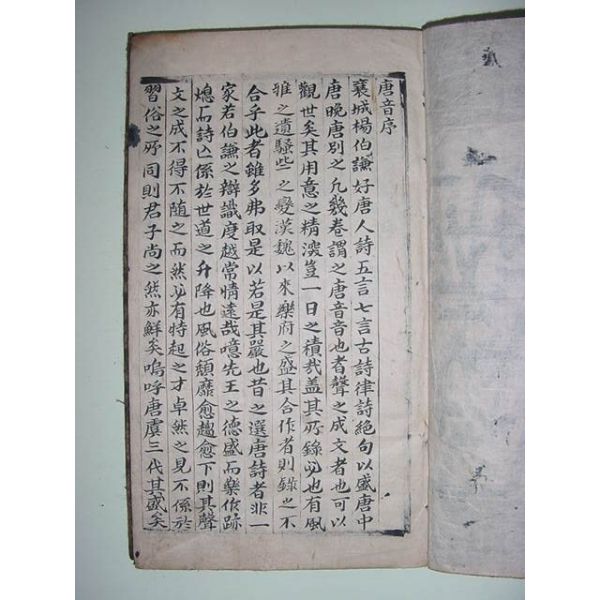 唐音序
襄城楊伯謙好唐人詩五言七言古詩律詩絕句以盛唐中
唐晚唐別之凡幾卷謂之唐音音也者聲之成文者也可以
觀世矣其用意之精深豈一日之積哉盖其所錄必也有風
雅之遺騷些之變漢魏以來樂府之盛其合作者則錄之不
合乎此者雖多弗取是以若是其嚴也昔之選唐詩者非一
家若伯謙之辯識度越常情遠哉噫先王之德盛而樂作跡
熄而詩亾係於世道之升降也風俗頹靡愈趨愈下則其聲
文之成不得不随之而然必有特起之才卓然之見不係於
習俗之所同則君子尚之然亦鮮矣嗚呼唐虞三代其盛矣